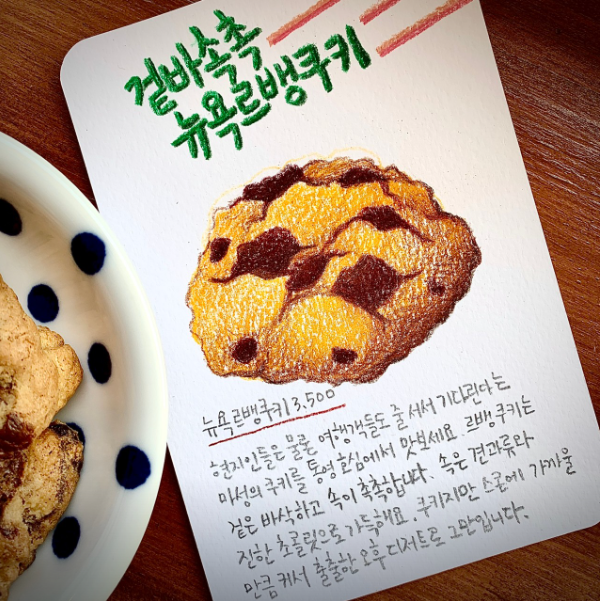 겉바속촉
뉴욕르뱅쿠키
뉴욕르뱅쿠키 3,500
현지인들은 물론 여행객들도 줄 서서 기다린다는
마성의 쿠키를 통영 호심에서 맛보세요. 르뱅 쿠키는
겉은 바삭하고 속이 촉촉합니다. 속은 견과류와
진한 초콜릿으로 가득해요. 쿠키지만 스콘에 가까울
만큼 커서 출출한 오후 디저트로 그만입니다.